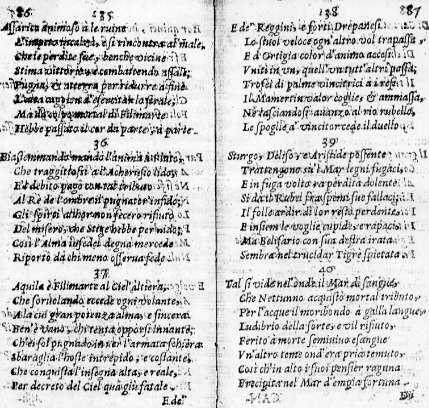 886
35
Assarico animoso à le ruine
L'impeto incalza, e si rincontra al male,
Che le perdite sue, benche vicine
Stima vittorie, e combattendo assale;
Pugna, & atterra per ridurre a fine
Ma il colpo mortal di Filimarte
Hebbe passato il cor da parte, a parte.
36
Biastemmando mandò l'anima
Che traggittossi a l'Acherusio lido,
E'l debito pagò con tal tributo
Al Rè de l'ombre il pugnator infido;
Gli spirti all'hor non fecero rifiuto
Del misero, che Stige hebbe per nido;
Così l'Alma infedel degna mercede
Riportò da chi meno osserva fede
37
Aquila è Filimarte al Ciel altiera,
Che sorvolando eccede ogni volante,
A la cui gran potenza alma, e sincera
Ben'è vano, chi tenta opporsi innante;
Ch'ei sol pugnado, in ver l'armata schiera
Sbaraglia l'hoste intrepido, e costante,
Che conquista l'insegna alta, e reale,
Per decreto del Ciel qua giù fatale
E de'
887
38
E de' Reggini, e forti Drepanesi
Lo stuol veloce ogn'altro vol trapassa,
E d'Ortigia color d'animo accesi
Vniti in vn, quell'vn tutt'altri passa;
Trofei di palme vincitrici
Il Mamertin valor coglie, & ammassa,
Ne lasciandosi avanzo al rio rubello,
Le spoglie a' vincitor cede il duello.
39
Sturgo, Deliso, e Aristide possente
Trattengon sù'l Mar legni fugaci,
E in fuga volto va perdita dolente
Si dà il Rubel frà speni sue fallaci,
Il folle ardir di lor restò perdente,
E insiem le voglie cupide, e rapaci,
Ma Belisario con sua destra irata
Sembra nel trucidar Tigre spietata
40
Tal si vide nel'onde il Mar di sangue,
Che Nettunno acquistò mortal tributo,
Per l'acque il moribondo à galla langue,
Ludibrio della sorte, e vil rifiuto,
Ferito à morte semivivo esangue
Vn'altro teme ond'era pria temuto,
Così ch'in alto i suoi pensier raguna
Precipita nel Mar d'empia fortuna.